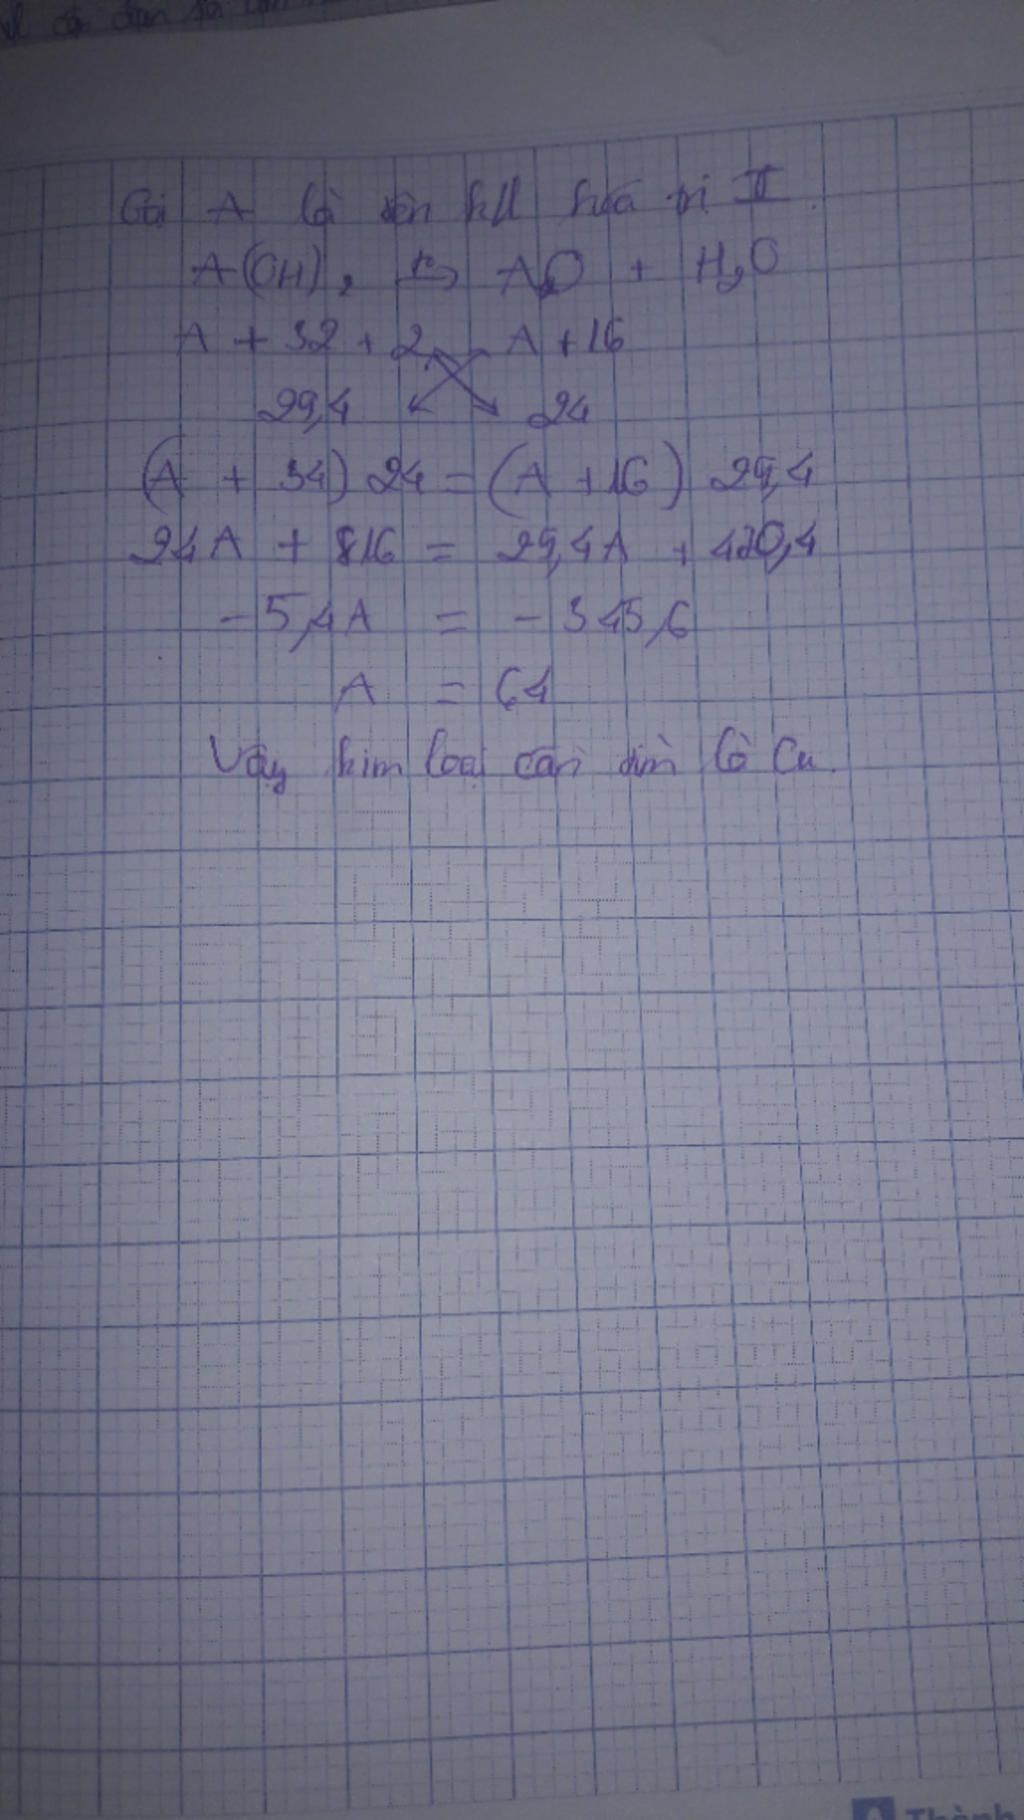 Gọi A là tên kl hóa trị II.
A(OH)₂ t°→ AO + H₂O
A + 32 + 2 A + 16
29,4 24
(A + 34) 24 = (A + 16) 29,4
24A + 816 = 29,4A + 470,4
- 5,4A = - 345,6
A = 64
Vậy kim loại cần tìm là Cu.
Thành